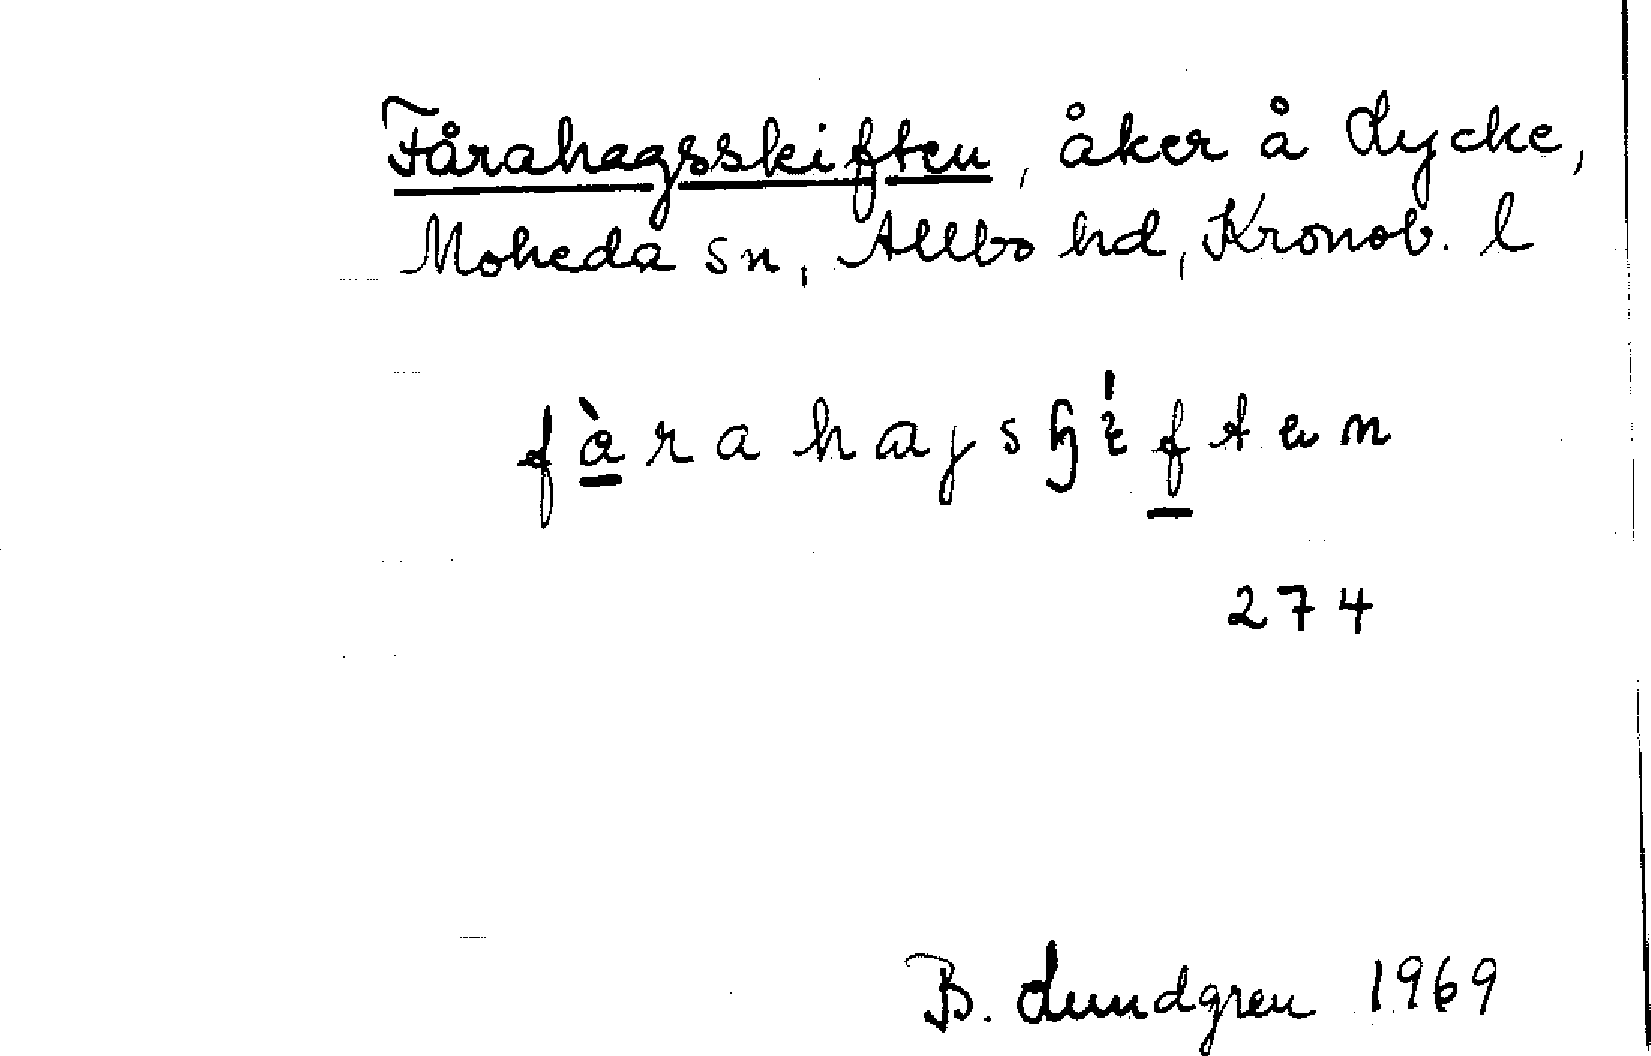 Fårahagsskiften, åker å Lycke,
Moheda sn, Allbo hd, Kronob. l
274
B. Lundgren 1969